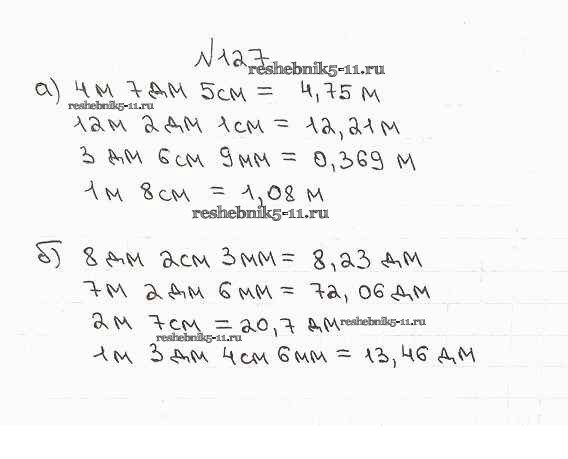 №127
reshebnik5-11.ru
а) 4м 7дм 5см = 4,75 м
reshebnik5-11.ru
12м 2дм 1см = 12,21м
3 дм 6см 9мм = 0,369 м
1м 8см = 1,08 м
reshebnik5-11.ru
б) 8 дм 2см 3мм = 8,23 дм
7м 2дм 6мм = 72,06 дм
2м 7см = 20,7 дм reshebnik5-11.ru
reshebnik5-11.ru
1м 3 дм 4см 6мм = 13,46 дм